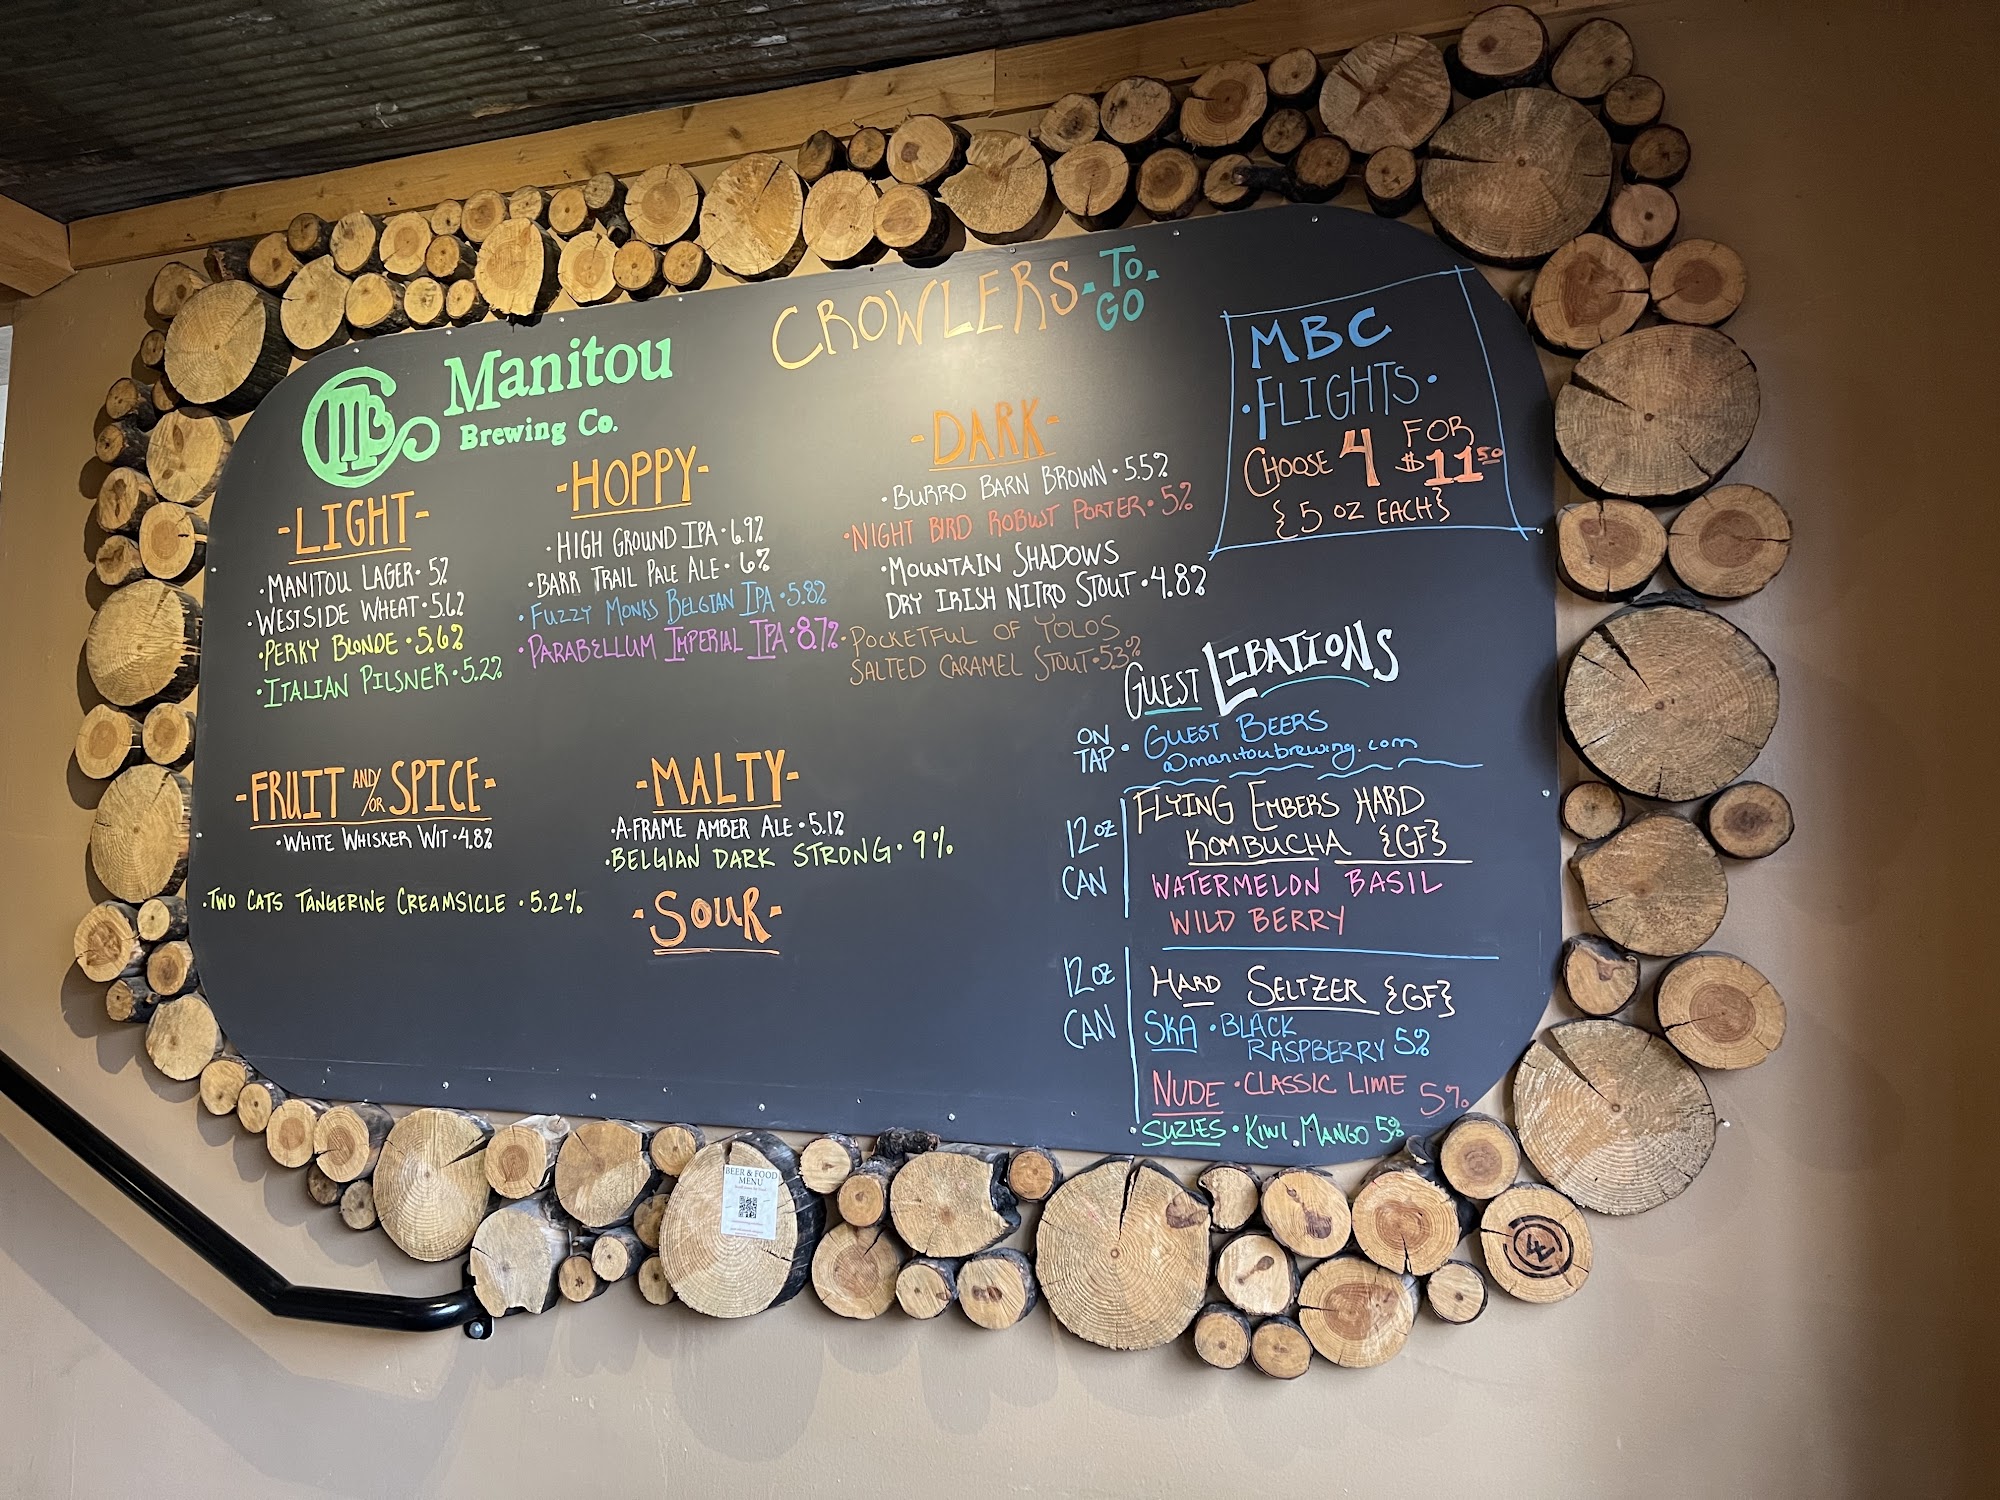 Manitou
Brewing Co.
CROWLERS • TO • GO
MBC
• FLIGHTS •
CHOOSE 4 FOR $11.50
{5 OZ EACH}
- LIGHT -
• MANITOU LAGER • 5%
• WESTSIDE WHEAT • 5.6%
• PERKY BLONDE • 5.6%
• ITALIAN PILSNER • 5.2%
- HOPPY -
• HIGH GROUND IPA • 6.9%
• BARR TRAIL PALE ALE • 6%
• FUZZY MONKS BELGIAN IPA • 5.8%
• PARABELLUM IMPERIAL IPA • 8.7%
- DARK -
• BURRO BARN BROWN • 5.5%
• NIGHT BIRD ROBUST PORTER • 5%
• MOUNTAIN SHADOWS
DRY IRISH NITRO STOUT • 4.8%
• POCKETFUL OF YOLOS
SALTED CARAMEL STOUT • 5.3%
- FRUIT AND/OR SPICE -
• WHITE WHISKER WIT • 4.8%
• TWO CATS TANGERINE CREAMSICLE • 5.2%
- MALTY -
• A-FRAME AMBER ALE • 5.1%
• BELGIAN DARK STRONG • 9%
- SOUR -
GUEST LIBATIONS
ON TAP • GUEST BEERS
@manitoubrewing.com
12 OZ CAN
FLYING EMBERS HARD
KOMBUCHA {GF}
WATERMELON BASIL
WILD BERRY
12 OZ CAN
HARD SELTZER {GF}
SKA • BLACK
RASPBERRY 5%
NUDE • CLASSIC LIME 5%
SUZIES • KIWI, MANGO 5%
BEER & FOOD
MENU